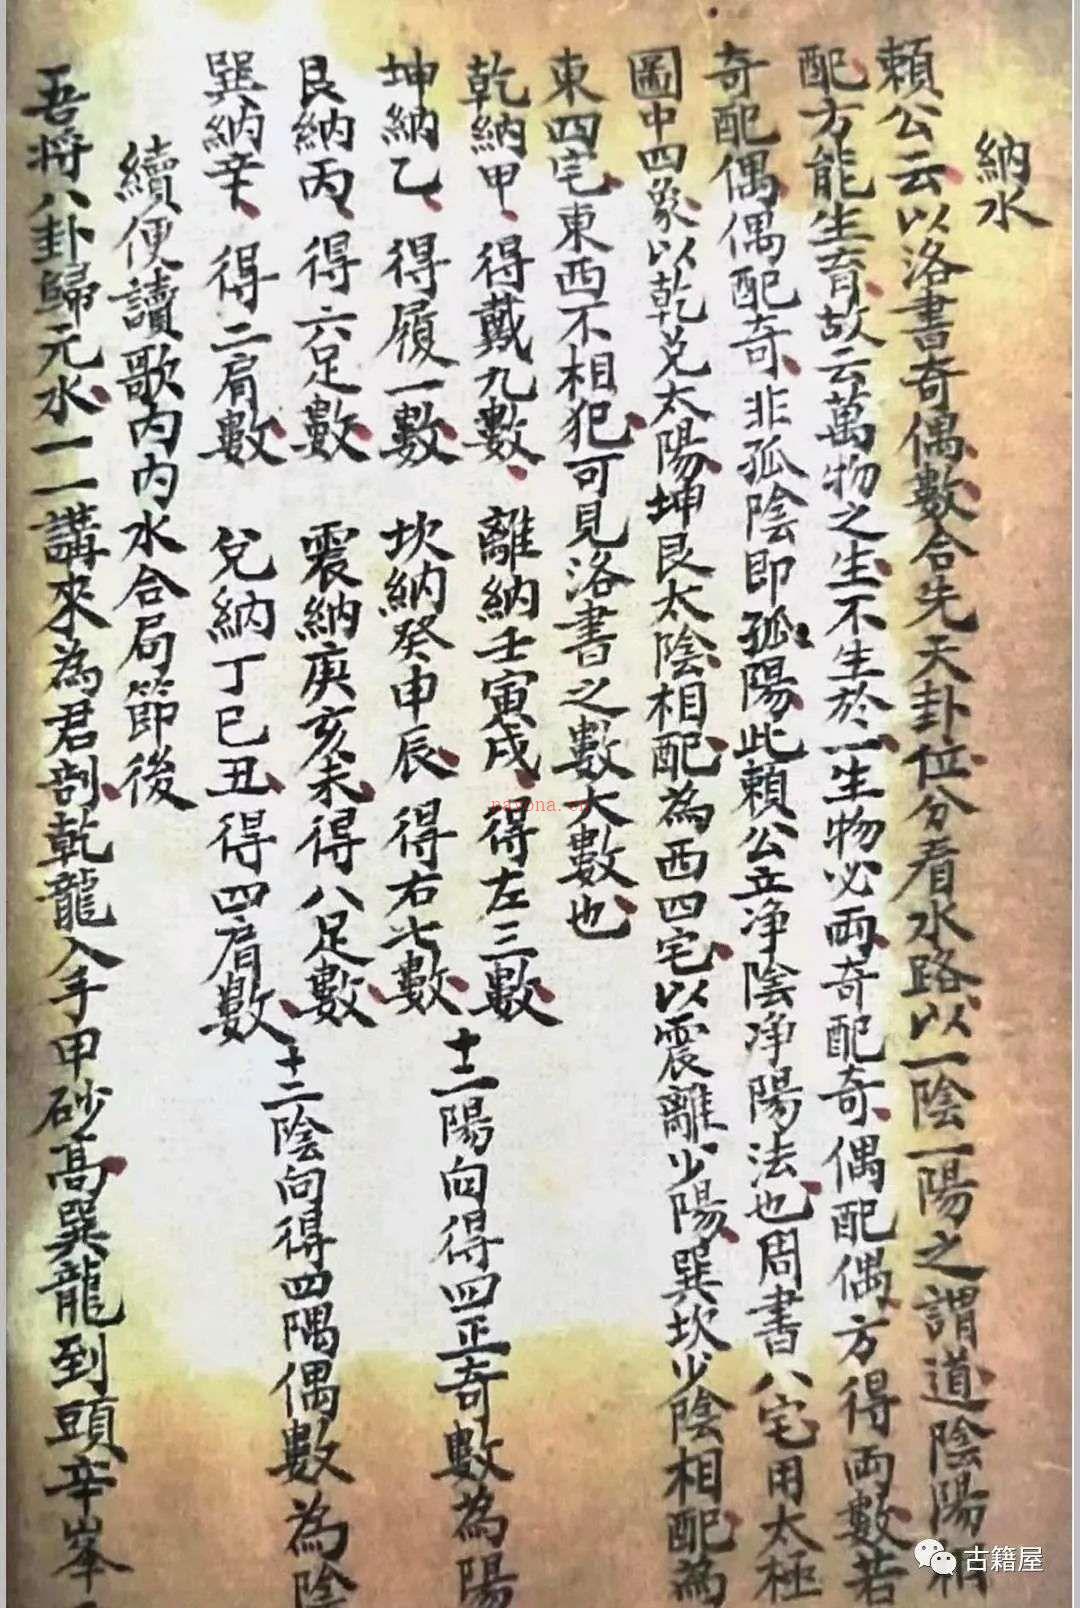 納水
賴公云以洛書奇偶數合先天卦位分看水路以一陰一陽之謂道陰陽相
配方能生育故云萬物之生不生於一生物必兩奇配奇偶配偶方得兩數若
奇配偶偶配奇非孤陰即孤陽此賴公立净陰净陽法也周書八宅用太極
圖中四象以乾兌太陽坤艮太陰相配為西四宅以震離少陽巽坎少陰相配為
東四宅東西不相犯可見洛書之數大數也
乾納甲得戴九數 離納壬寅戌得左三數
坤納乙得履一數 坎納癸申辰得右七數
十二陽向得四正奇數為陽
艮納丙得六足數 震納庚亥未得八足數
巽納辛得二肩數 兌納丁巳丑得四肩數
十二陰向得四隅偶數為陰
續便讀歌內內水合局節後
吾將八卦歸元水一一講來為君剖乾龍入手甲砂高巽龍到頭辛峯
nayona.cn
古籍屋